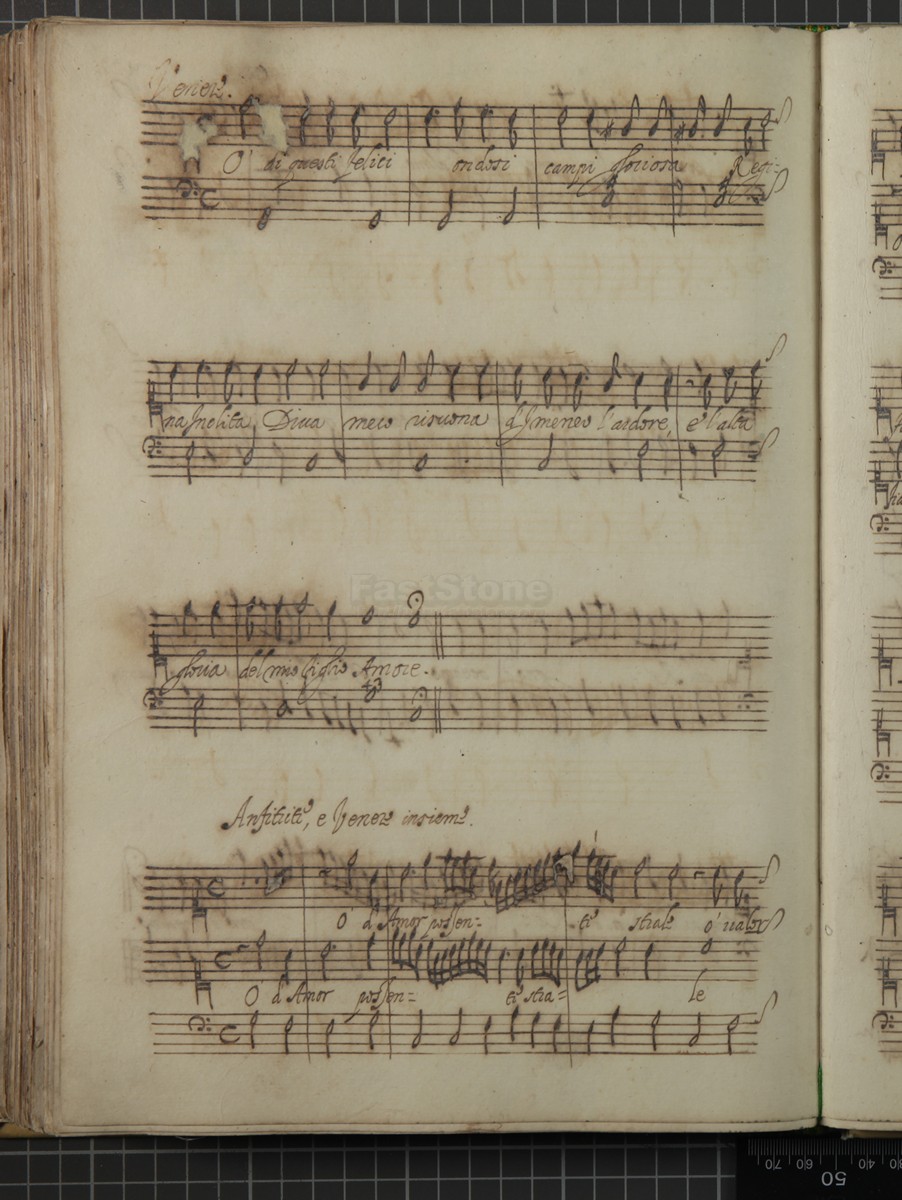 Venere.
O' di questi felici ondosi campi gloriosa Regi-
na Inclita Diva meco risuona d'Imeneo l'ardore, e l'alta
FastStone
gloria del mio figlio Amore.
43
Anfitrite, e Venere insieme.
O' d'Amor possen- te strale o' ualor
O d'Amor possen- te stra- le
70 60 50 40 30